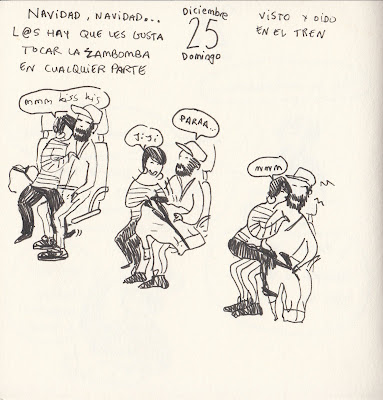 NAVIDAD, NAVIDAD...
L@S HAY QUE LES GUSTA
TOCAR LA ZAMBOMBA
EN CUALQUIER PARTE
Diciembre
25
Domingo
VISTO Y OIDO
EN EL TREN
mmm kiss kis
JiJi
PARAA...
mmm